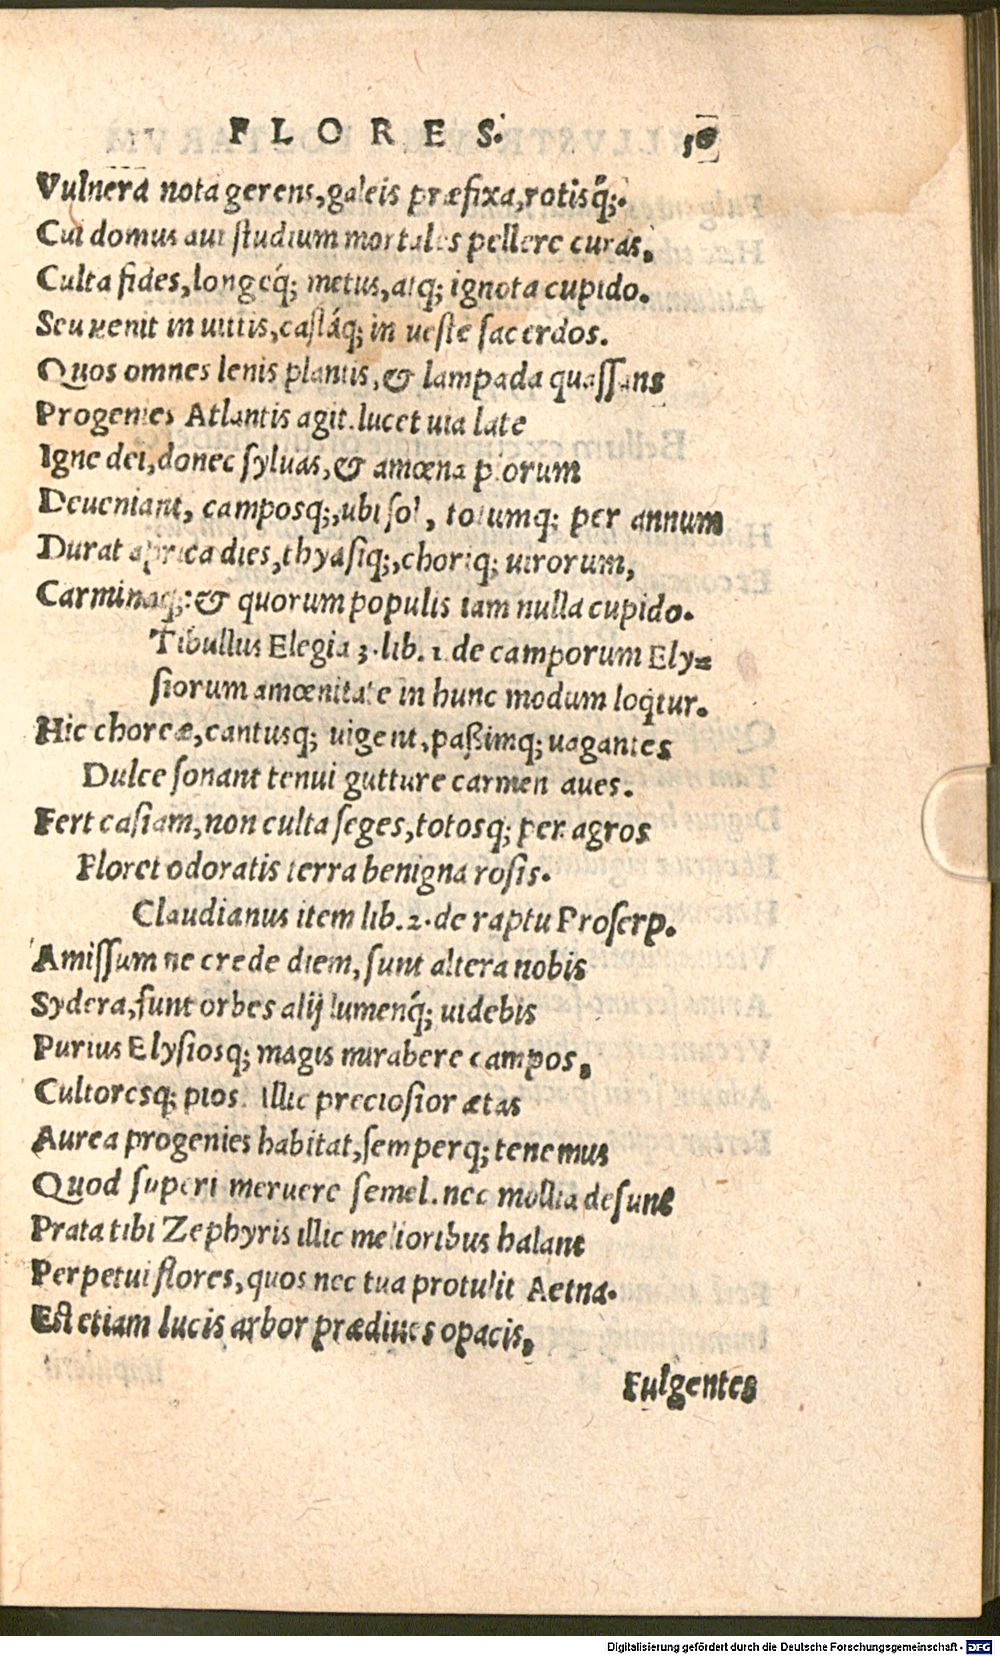 FLORES. 16
Vulnera nota gerens, galeis præfixa, rotisq́;.
Cui domus aut ſtudium mortales pellere curas,
Culta fides, longeq́; metus, atq; ignota cupido.
Seu uenit in uittis, caſtáq; in ueſte ſacerdos.
Quos omnes lenis plantis, & lampada quaſſans
Progenies Atlantis agit. lucet uia late
Igne dei, donec ſyluas, & amœna piorum
Deueniant, camposq;, ubi ſol, totumq; per annum
Durat aprica dies, thyaſiq;, choriq; uirorum,
Carminaq;: & quorum populis iam nulla cupido.
Tibullus Elegia 3. lib. 1. de camporum Ely=
ſiorum amœnitate in hunc modum loqtur.
Hic choreæ, cantusq; uigent, paßimq; uagantes
Dulce ſonant tenui gutture carmen aues.
Fert caſiam, non culta ſeges, totosq; per agros
Floret odoratis terra benigna roſis.
Claudianus item lib. 2. de raptu Proſerp.
Amiſſum ne crede diem, ſunt altera nobis
Sydera, ſunt orbes alij lumenq́; uidebis
Purius Elyſiosq; magis mirabere campos,
Cultoresq; pios. illic precioſior ætas
Aurea progenies habitat, ſemperq; tenemus
Quod ſuperi meruere ſemel. nec mollia deſunt
Prata tibi Zephyris illic melioribus halant
Perpetui flores, quos nec tua protulit Aetna.
Eſt etiam lucis arbor prædiues opacis,
Fulgentes
Digitalisierung gefördert durch die Deutsche Forschungsgemeinschaft - DFG